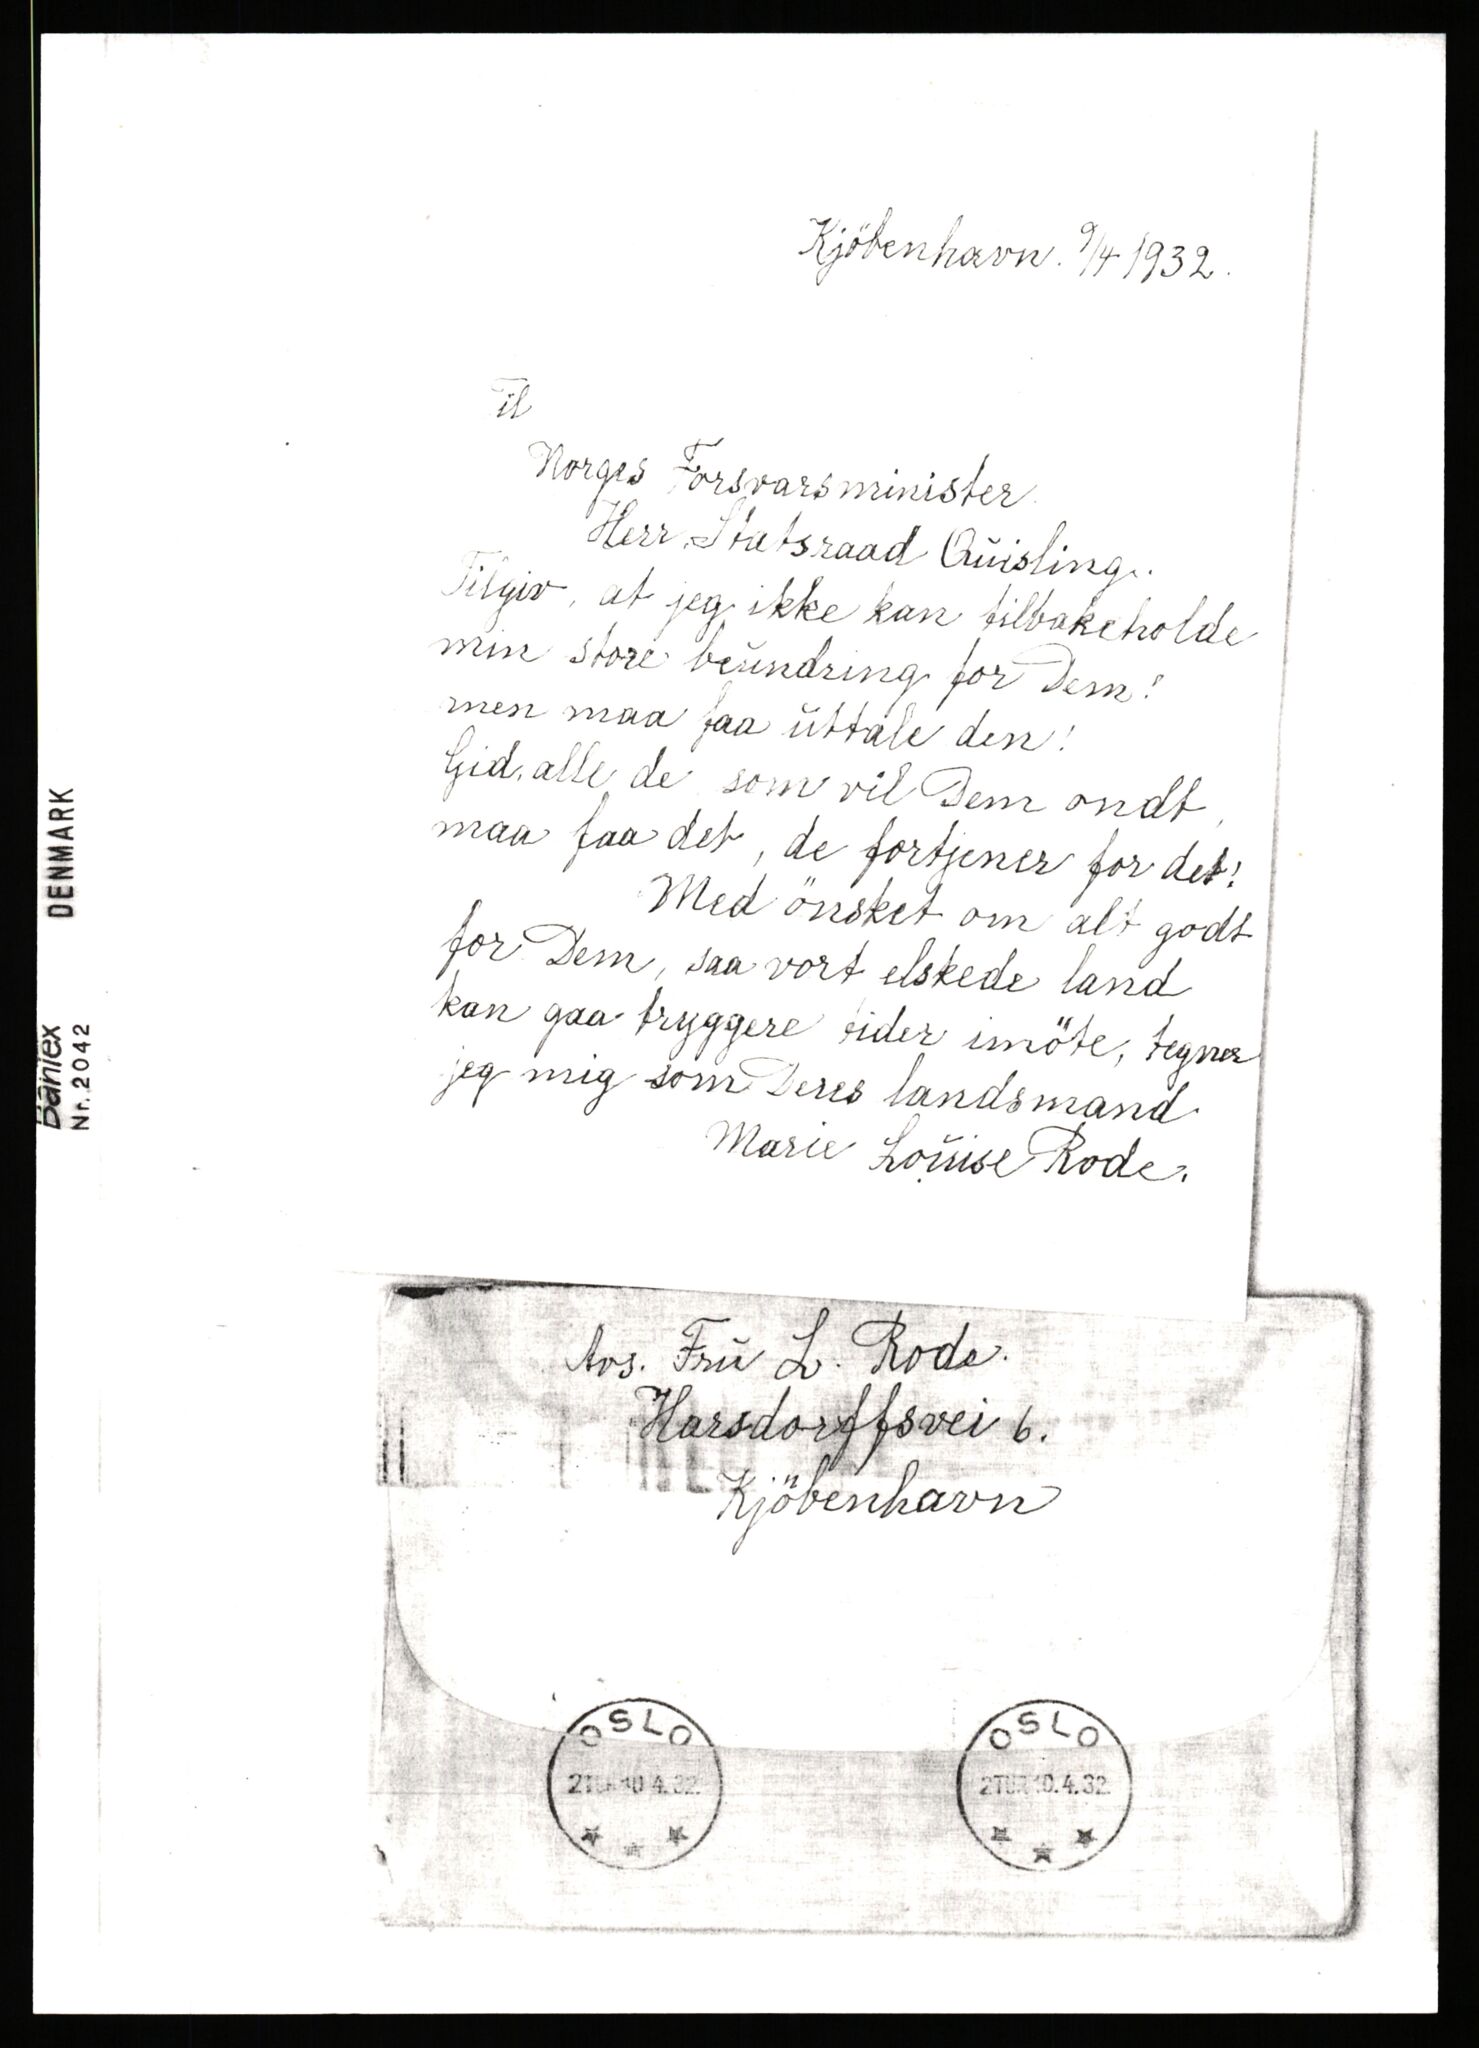 Kjöbenhavn. 9/4 1932.
Til
Norges Forsvarsminister
Herr Statsraad Quisling.
Tilgiv, at jeg ikke kan tilbakeholde
min store beundring for Dem!
men maa faa uttale den!
Gid alle de som vil Dem ondt,
maa faa det, de fortjener for det!
Med önsket om alt godt
for Dem, saa vort elskede land
kan gaa tryggere tider imöte, tegner
jeg mig som Deres landsmand
Marie Louise Rode.
Avs. Fru L. Rode.
Harsdorffsvei 6.
Kjöbenhavn
OSLO
2TUR10.4.32
OSLO
2TUR10.4.32
Bantex
Nr. 2042
DENMARK